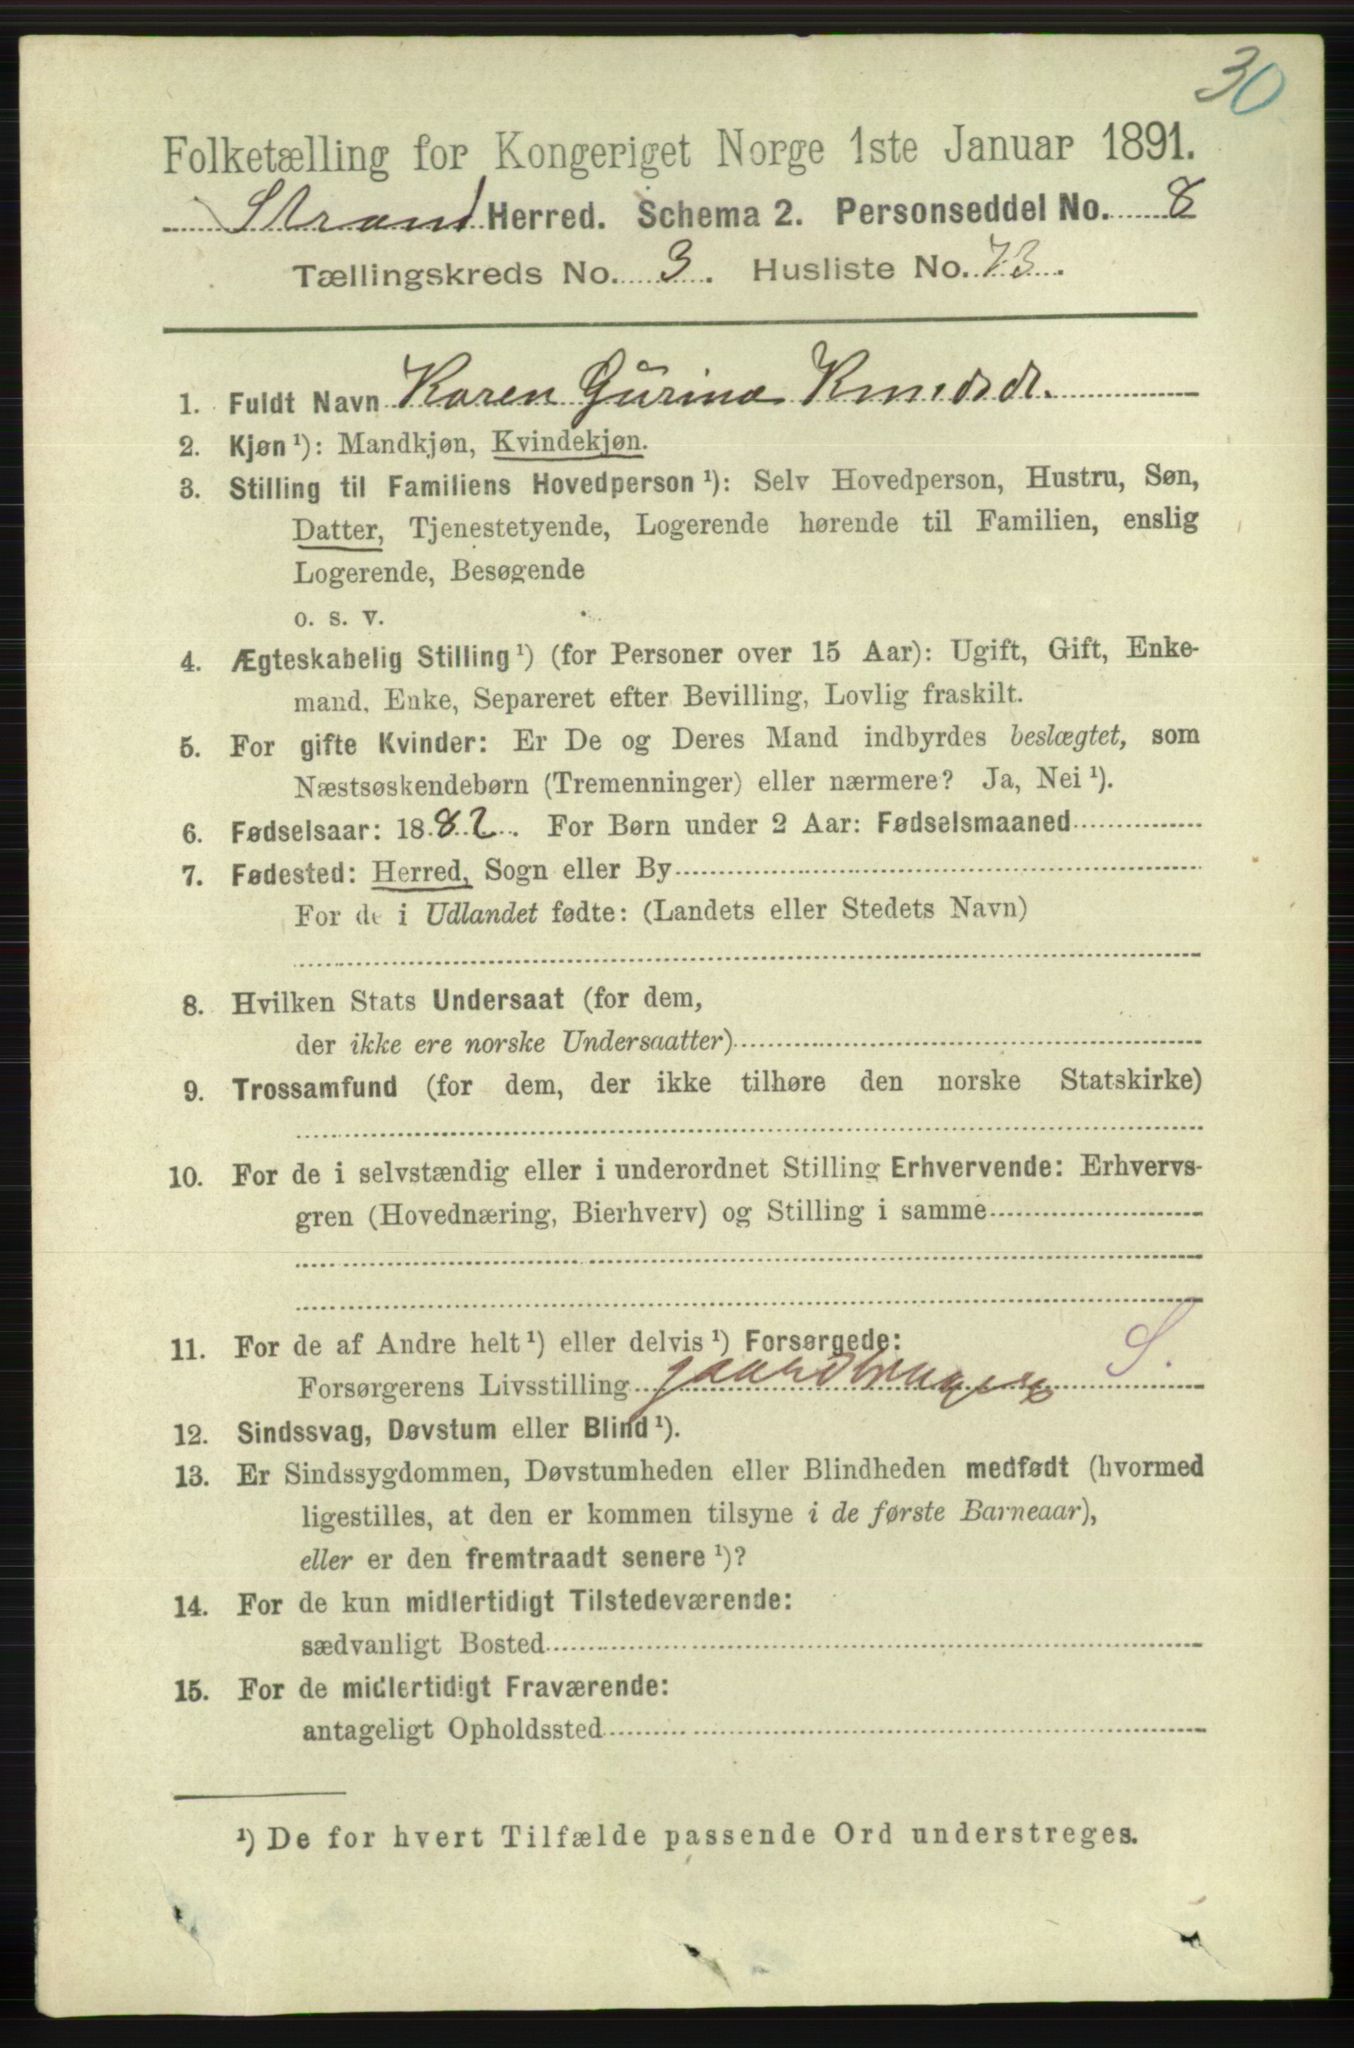 30
Folketælling for Kongeriget Norge 1ste Januar 1891.
Strand Herred. Schema 2. Personseddel No. 8
Tællingskreds No. 3. Husliste No. 73.
1. Fuldt Navn Karen Gurina Knudsdt.
2. Kjøn ¹): Mandkjøn, Kvindekjøn.
3. Stilling til Familiens Hovedperson ¹): Selv Hovedperson, Hustru, Søn,
Datter, Tjenestetyende, Logerende hørende til Familien, enslig
Logerende, Besøgende
o. s. v.
4. Ægteskabelig Stilling ¹) (for Personer over 15 Aar): Ugift, Gift, Enke-
mand, Enke, Separeret efter Bevilling, Lovlig fraskilt.
5. For gifte Kvinder: Er De og Deres Mand indbyrdes beslægtet, som
Næstsøskendebørn (Tremenninger) eller nærmere? Ja, Nei ¹).
6. Fødselsaar: 1882. For Børn under 2 Aar: Fødselsmaaned
7. Fødested: Herred, Sogn eller By
For de i Udlandet fødte: (Landets eller Stedets Navn)
8. Hvilken Stats Undersaat (for dem,
der ikke ere norske Undersaatter)
9. Trossamfund (for dem, der ikke tilhøre den norske Statskirke)
10. For de i selvstændig eller i underordnet Stilling Erhvervende: Erhvervs-
gren (Hovednæring, Bierhverv) og Stilling i samme
11. For de af Andre helt ¹) eller delvis ¹) Forsørgede: S.
Forsørgerens Livsstilling gaardbruger
12. Sindssvag, Døvstum eller Blind ¹).
13. Er Sindssygdommen, Døvstumheden eller Blindheden medfødt (hvormed
ligestilles, at den er kommen tilsyne i de første Barneaar),
eller er den fremtraadt senere ¹)?
14. For de kun midlertidigt Tilstedeværende:
sædvanligt Bosted
15. For de midlertidigt Fraværende:
antageligt Opholdssted
¹) De for hvert Tilfælde passende Ord understreges.